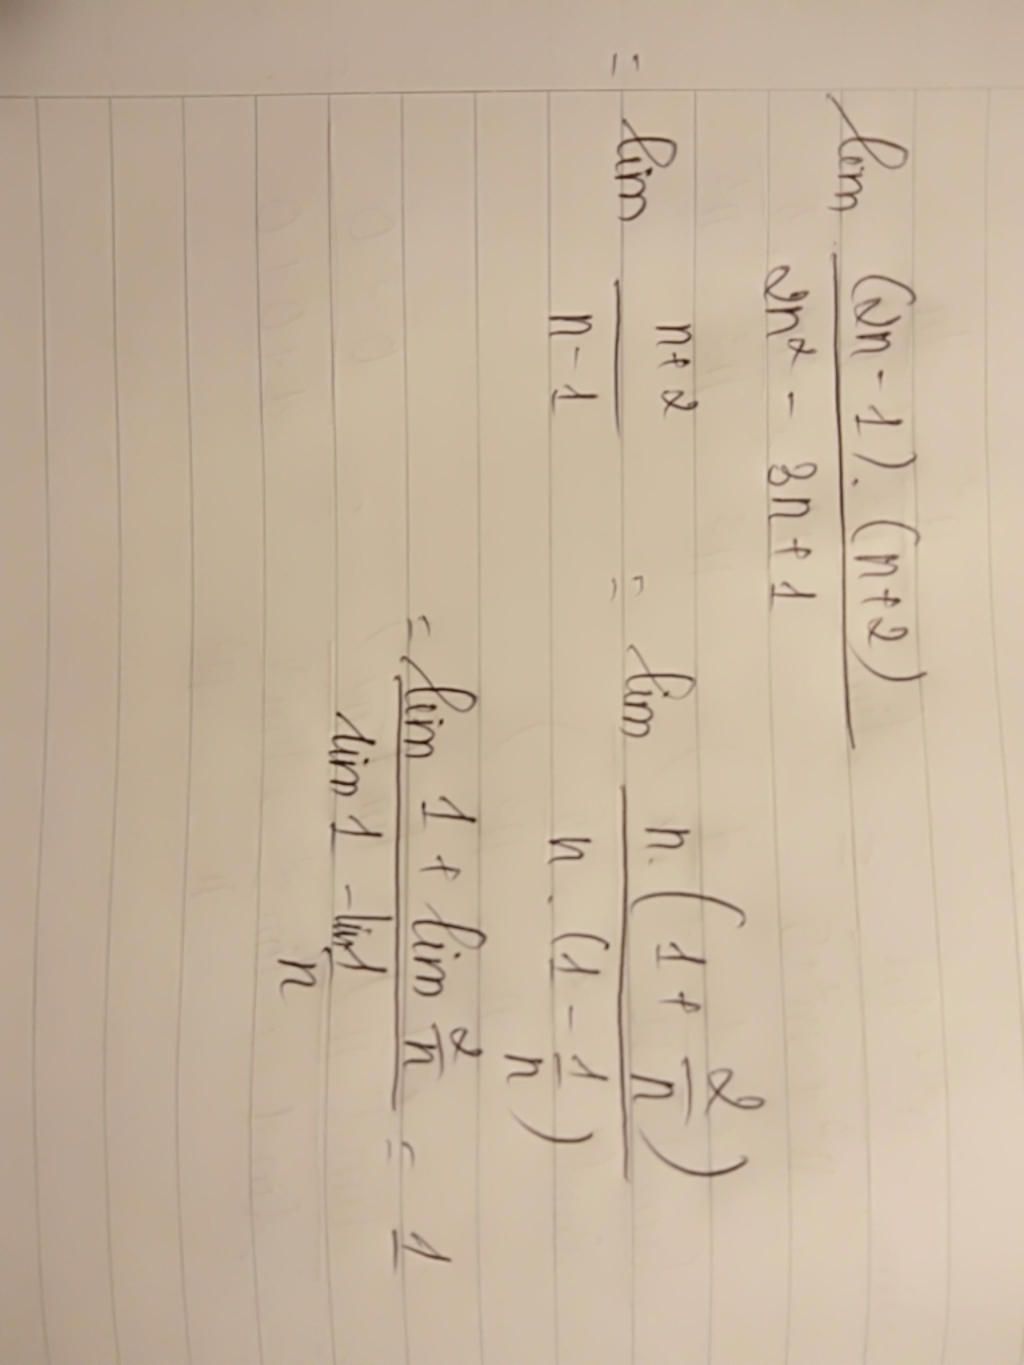 lim (2n-1).(n+2) / 2n² - 3n+1
= lim n+2 / n-1 = lim n.(1 + 2/n) / n.(1 - 1/n)
= lim 1 + lim 2/n / lim 1 - lim 1/n = 1